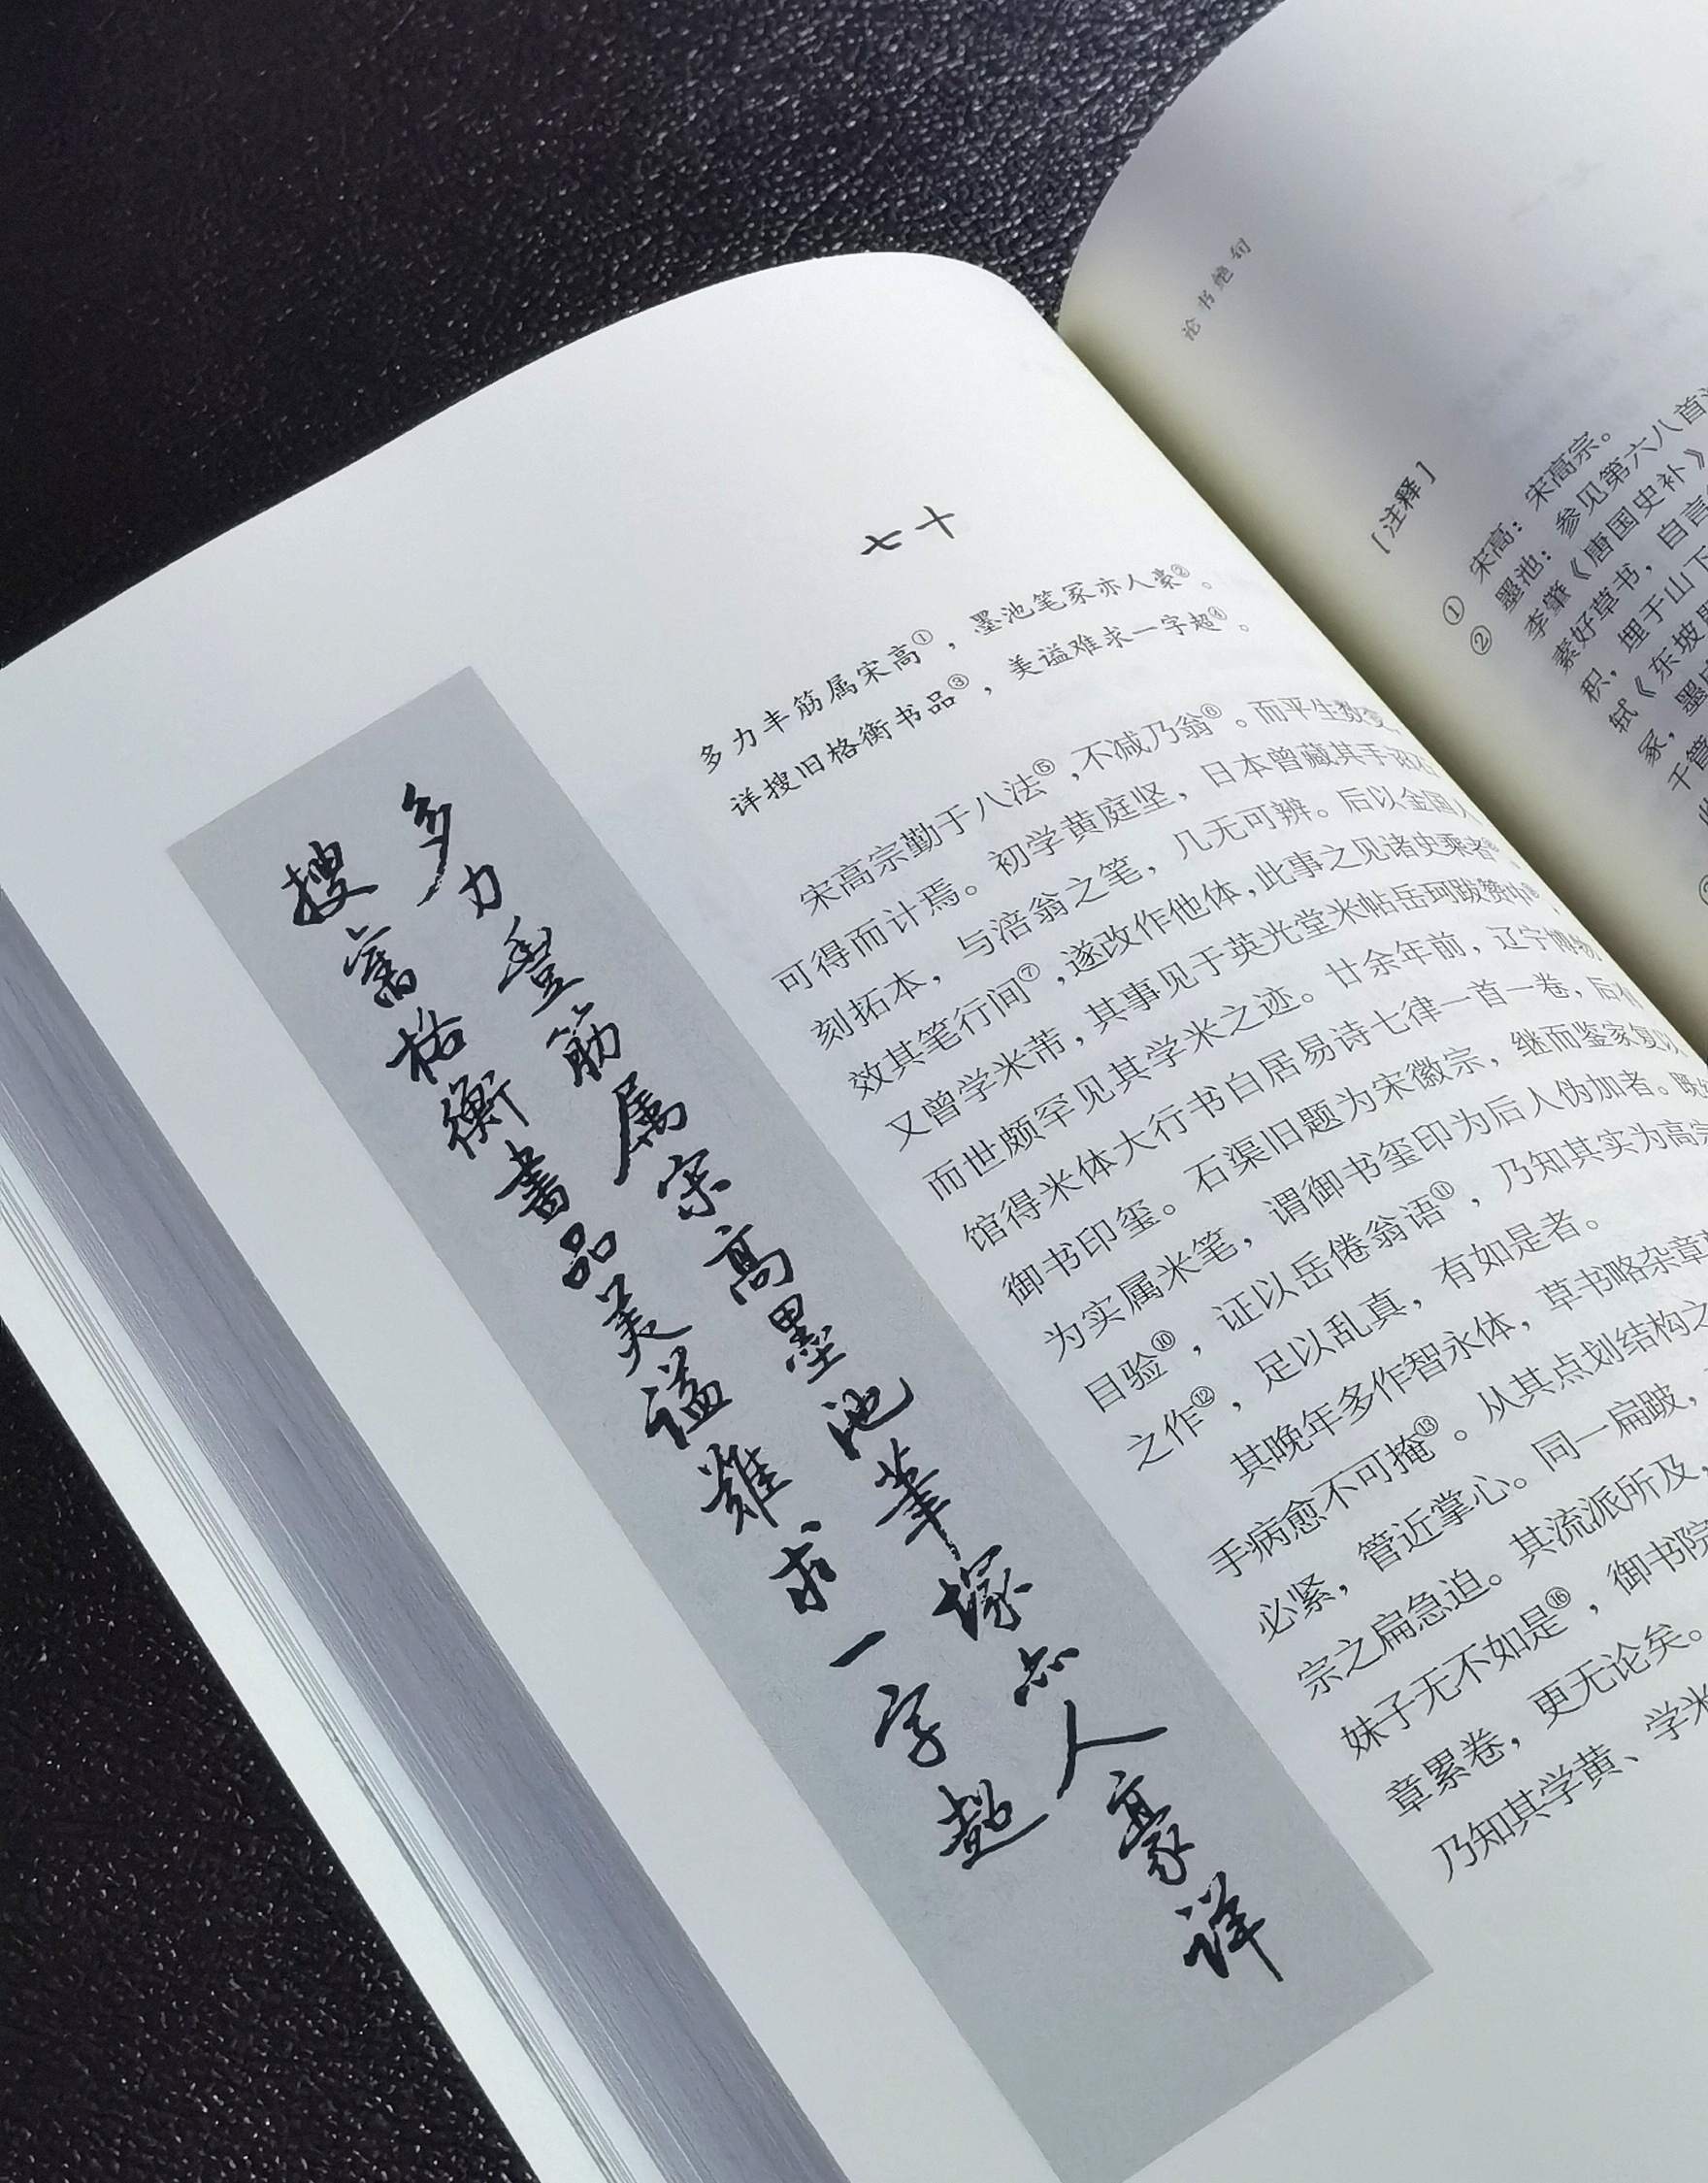 七十
多力丰筋属宋高①，墨池笔冢亦人豪②。
详搜旧格衡书品③，美谥难求一字超④。
宋高宗勤于八法⑤，不减乃翁⑥。而平生数变，
可得而计焉。初学黄庭坚，日本曾藏其手诏石
刻拓本，与涪翁之笔，几无可辨。后以金国人
效其笔行间⑦，遂改作他体，此事之见诸史乘者⑧，
又曾学米芾，其事见于英光堂米帖岳珂跋赞中⑨，
而世颇罕见其学米之迹。廿余年前，辽宁博物
馆得米体大行书白居易诗七律一首一卷，后有
御书印玺。石渠旧题为宋徽宗，继而鉴家复以
为实属米笔，谓御书玺印为后人伪加者。既
目验⑩，证以岳倦翁语⑪，乃知其实为高宗
之作⑫，足以乱真，有如是者。
其晚年多作智永体，草书略杂章草
手病愈不可掩⑬。从其点划结构之
必紧，管近掌心。同一扁跛，
宗之扁急迫。其流派所及，
妹子无不如是⑯，御书院
章累卷，更无论矣。
乃知其学黄、学米
多力豐筋属宋高墨池筆塚亦人豪詳
搜舊格衡書品美謚難求一字超
论书绝句
[注释]
① 宋高：宋高宗。
② 墨池：参见第六八首注
李肇《唐国史补》
素好草书，自言
积，埋于山下
轼《东坡题
冢，墨
千管